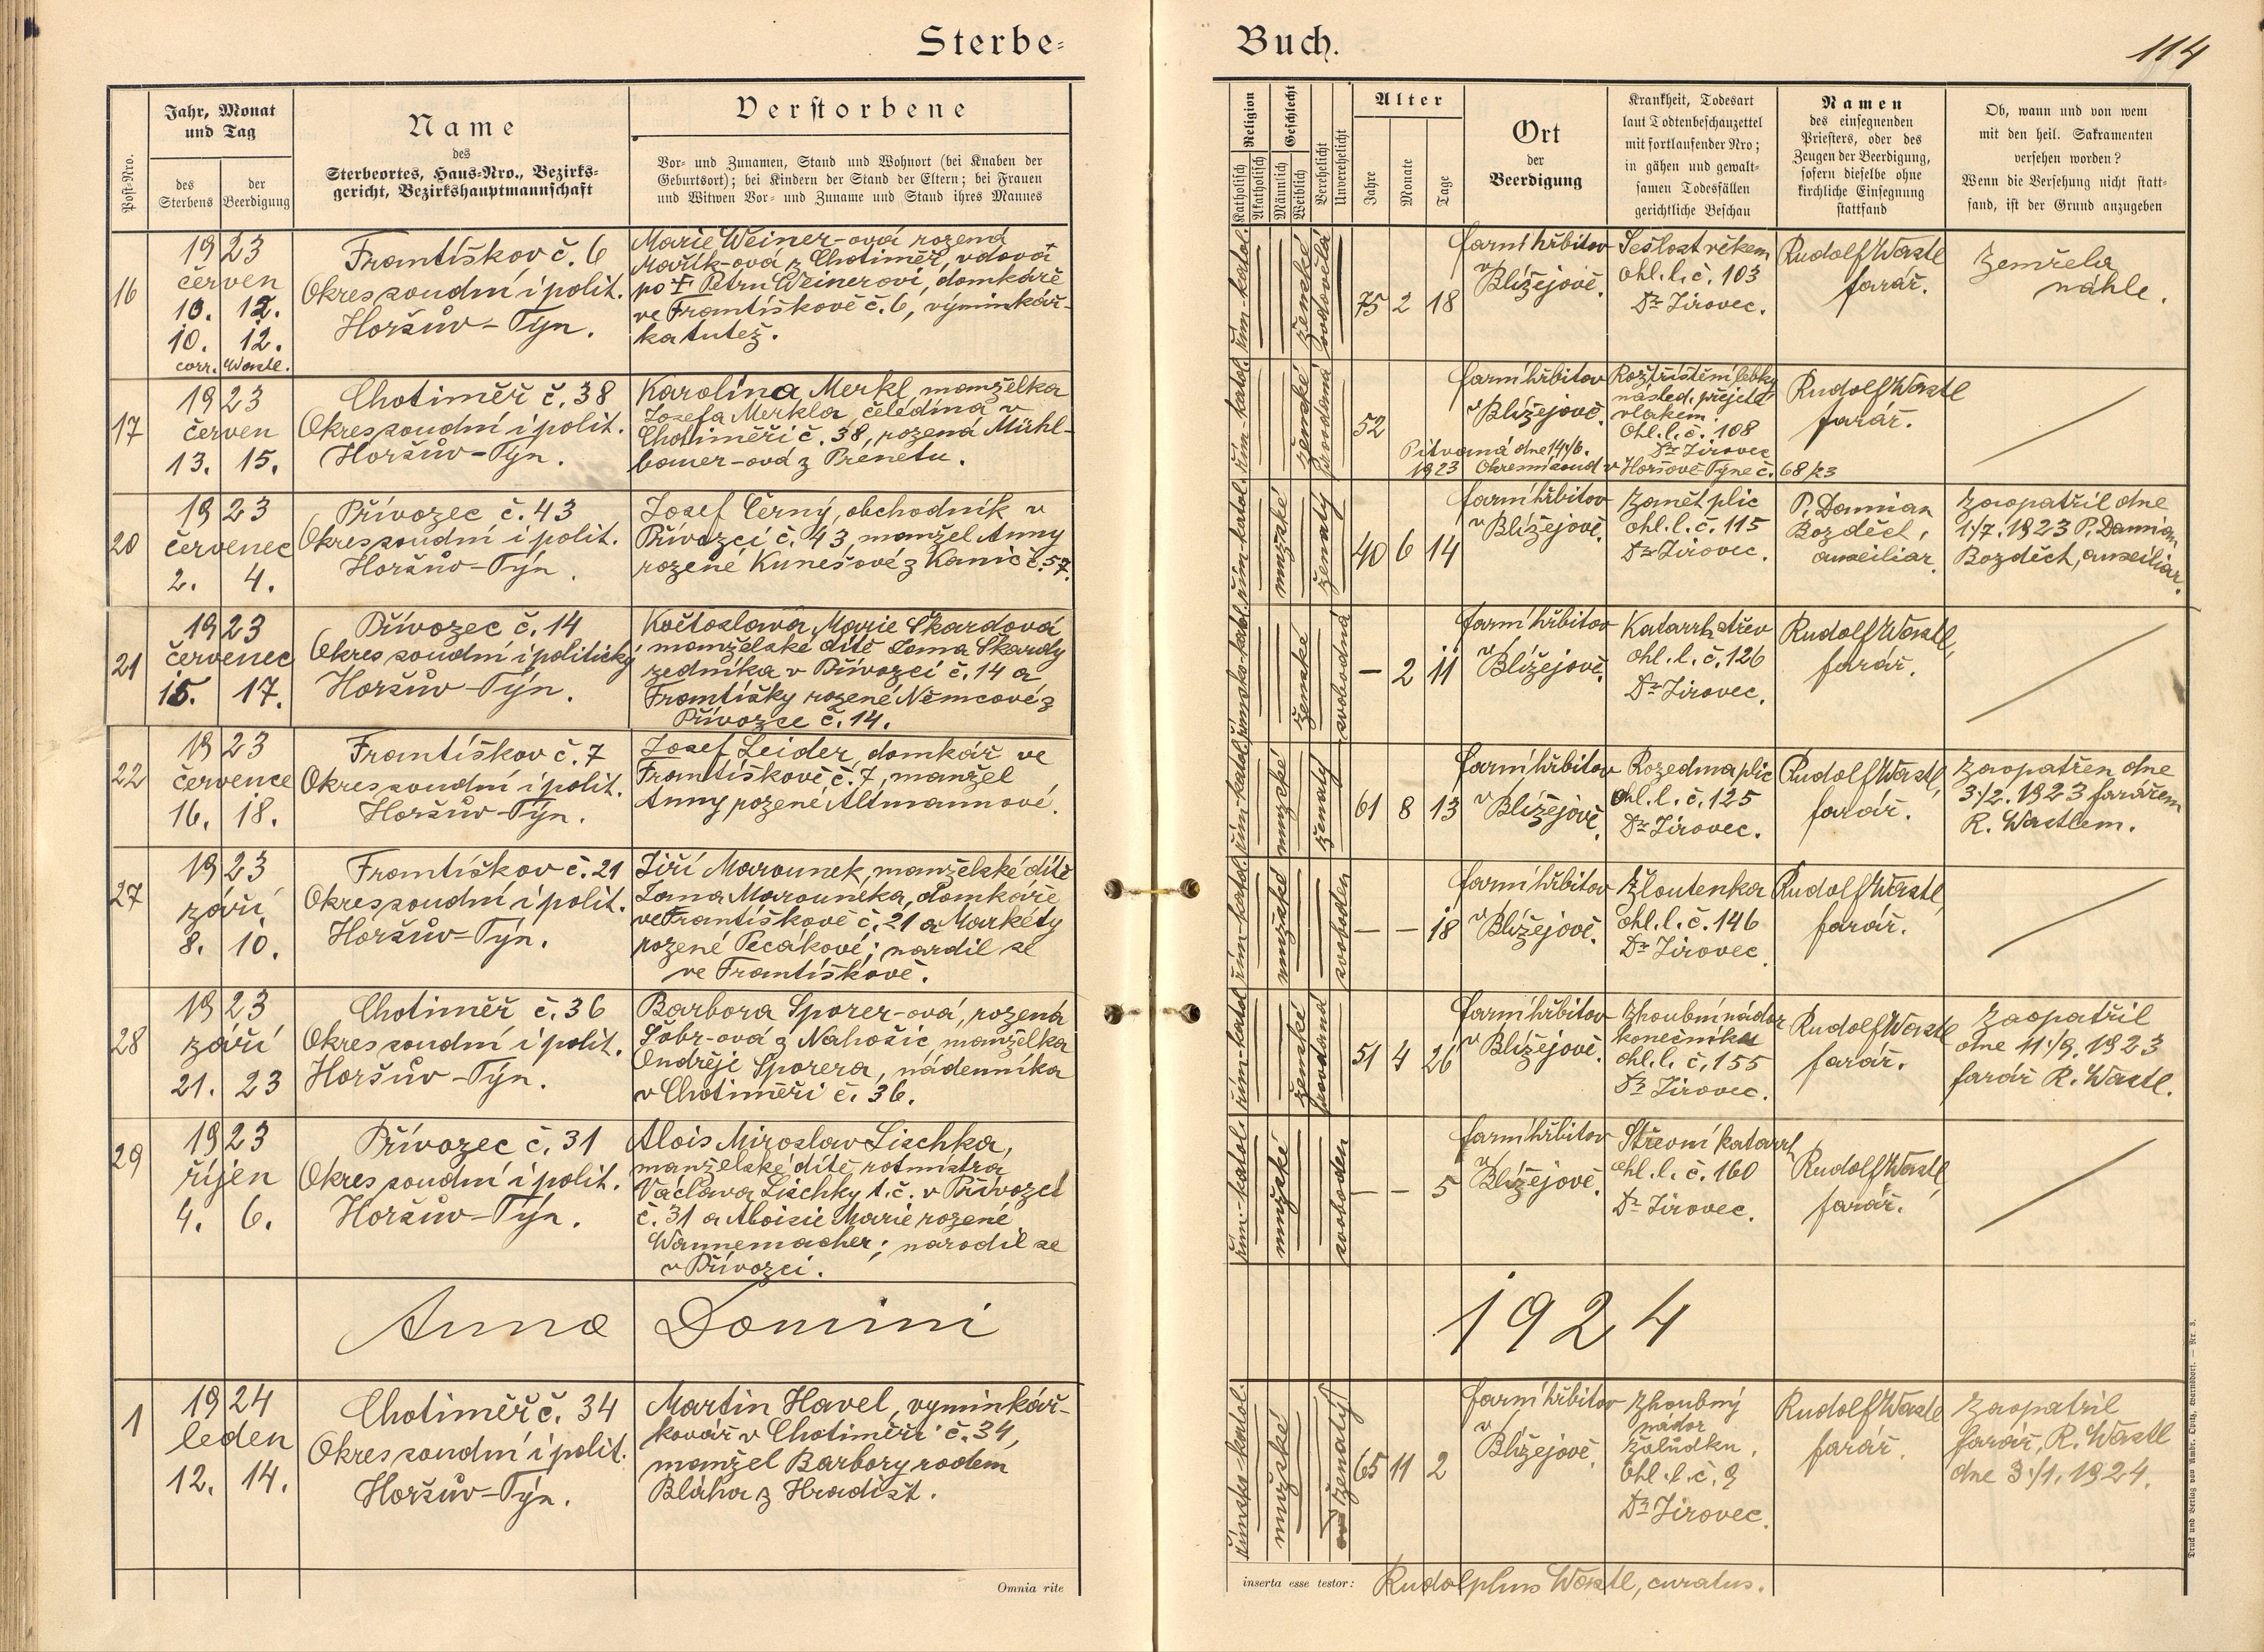 Sterbe-
Buch.
114
Post-Nro.
Jahr, Monat
und Tag
des
Sterbens
der
Beerdigung
Name
des
Sterbeortes, Haus-Nro., Bezirks-
gericht, Bezirkshauptmannschaft
Verstorbene
Vor- und Zunamen, Stand und Wohnort (bei Knaben der
Geburtsort); bei Kindern der Stand der Eltern; bei Frauen
und Witwen Vor- und Zuname und Stand ihres Mannes
Religion
Katholisch
Akatholisch
Geschlecht
Männlich
Weiblich
Verehelicht
Unverehelicht
Alter
Jahre
Monate
Tage
Ort
der
Beerdigung
Krankheit, Todesart
laut Todtenbeschauzettel
mit fortlaufender Nro;
in gähen und gewalt-
samen Todesfällen
gerichtliche Beschau
Namen
des einsegnenden
Priesters, oder des
Zeugen der Beerdigung,
sofern dieselbe ohne
kirchliche Einsegnung
stattfand
Ob, wann und von wem
mit den heil. Sakramenten
versehen worden?
Wenn die Versehung nicht statt-
fand, ist der Grund anzugeben
16
1923
červen
10. 12.
10. 12.
corr. Wastl.
Františkov č. 6
Okres soudní i polit.
Horšův-Týn.
Marie Weiner-ová rozená
Mařík-ová z Chotiměř, vdova
po † Petru Weinerovi, domkáře
ve Františkově č. 6, výminkář-
ka tutéž.
řím.-katol.
ženské
ovdovělá
75 2 18
farní hřbitov
v Blížejově.
Sešlost věkem
ohl. l. č. 103
Dr Jírovec.
Rudolf Wastl
farář.
Zemřela
náhle.
17
1923
červen
13. 15.
Chotiměř č. 38
Okres soudní i polit.
Horšův-Týn.
Karolina Merkl, manželka
Josefa Merkla, čeledína v
Chotiměři č. 38, rozená Mühl-
bauer-ová z Prenetu.
řím-katol.
ženské
provdaná
52
farní hřbitov
v Blížejově.
Roztříštění lebky
násled. přejetí
vlakem.
Ohl. l. č. 108
Dr Jírovec
Pitvaná dne 14/6.
1923 Okresní soud v Horšově Týně č. 68/23
Rudolf Wastl
farář.
20
1923
červenec
2. 4.
Přívozec č. 43
Okres soudní i polit.
Horšův-Týn.
Josef Černý, obchodník v
Přívozci č. 43, manžel Anny
rozené Kunešové z Kanic č. 57.
řím-katol.
mužské
ženatý
40 6 14
farní hřbitov
v Blížejově.
Zánět plic
ohl. l. č. 115
Dr Jírovec.
P. Damian
Bozděch,
auxiliar.
Zaopatřil dne
1/7. 1923 P. Damian
Bozděch, auxiliar.
21
1923
červenec
15. 17.
Přívozec č. 14
Okres soudní i politický
Horšův-Týn.
Květoslava Marie Škardová
manželské dítě Jana Škardy
zedníka v Přívozci č. 14 a
Františky rozené Němcové z
Přívozce č. 14.
římsko-katol.
ženské
svobodná
— 2 11
farní hřbitov
v Blížejově.
Katarrh střev
ohl. l. č. 126
Dr Jírovec.
Rudolf Wastl,
farář.
22
1923
července
16. 18.
Františkov č. 7
Okres soudní i polit.
Horšův-Týn.
Josef Leider, domkář ve
Františkově č. 7, manžel
Anny rozené Altmannové.
řím-katol.
mužské
ženatý
61 8 13
farní hřbitov
v Blížejově.
Rozedma plic
ohl. l. č. 125
Dr Jírovec.
Rudolf Wastl,
farář.
Zaopatřen dne
3/2. 1923 farářem
R. Wastlem.
27
1923
září
8. 10.
Františkov č. 21
Okres soudní i polit.
Horšův-Týn.
Jiří Marounek, manželské dítě
Jana Marounka, domkáře
ve Františkově č. 21 a Markéty
rozené Pecákové; nardil se
ve Františkově.
řím-katol.
mužské
svoboden
— — 18
farní hřbitov
v Blížejově.
Žloutenka
ohl. l. č. 146
Dr Jírovec.
Rudolf Wastl,
farář.
28
1923
září
21. 23
Chotiměř č. 36
Okres soudní i polit.
Horšův-Týn.
Barbora Sporer-ová, rozená
Šobr-ová z Nahošic, manželka
Ondřeje Sporera, nádenníka
v Chotiměři č. 36.
řím-katol.
ženské
provdaná
51 4 26
farní hřbitov
v Blížejově.
Zhoubní nádor
konečníka
ohl. l. č. 155
Dr Jírovec.
Rudolf Wastl
farář.
Zaopatřil
dne 11./9. 1923
farář R. Wastl.
29
1923
říjen
4. 6.
Přívozec č. 31
Okres soudní i polit.
Horšův-Týn.
Alois Miroslav Lischka,
manželské dítě rotmistra
Václava Lischky t. č. v Přívozci
č. 31 a Aloisie Marie rozené
Wannemacher; narodil se
v Přívozci.
řím.-katol.
mužské
svoboden
— — 5
farní hřbitov
v Blížejově.
Střevní katarrh
ohl. l. č. 160
Dr Jírovec.
Rudolf Wastl,
farář.
Anno Domini
1924
1
1924
leden
12. 14.
Chotiměř č. 34
Okres soudní i polit.
Horšův-Týn.
Martin Havel, vyminkář-
kovář v Chotiměři č. 34,
manžel Barbory rodem
Bláha z Hradišt.
římsko-katol.
mužské
ženatý
65 11 2
farní hřbitov
v
Blížejově.
Zhoubný
nádor
žaludku.
Ohl. l. č. 9
Dr Jírovec.
Rudolf Wastl
farář.
Zaopatřil
farář, R. Wastl
dne 3./1. 1924.
Omnia rite
inserta esse testor: Rudolphus Wastl, curatus.
Druck und Verlag von Ambr. Opitz, Warnsdorf. — Nr. 3.